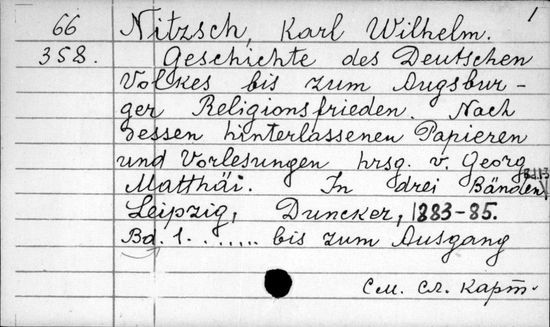 1
66 Nitzsch, Karl Wilhelm.
358. Geschichte des Deutschen
Volkes bis zum Augsbur-
ger Religionsfrieden. Nach
dessen hinterlassenen Papieren
und Vorlesungen hrsg. v. Georg
Matthäi. In drei Bänden
Leipzig, Duncker, 1883-85.
Bd. 1. ....... bis zum Ausgang
См. сл. карт.